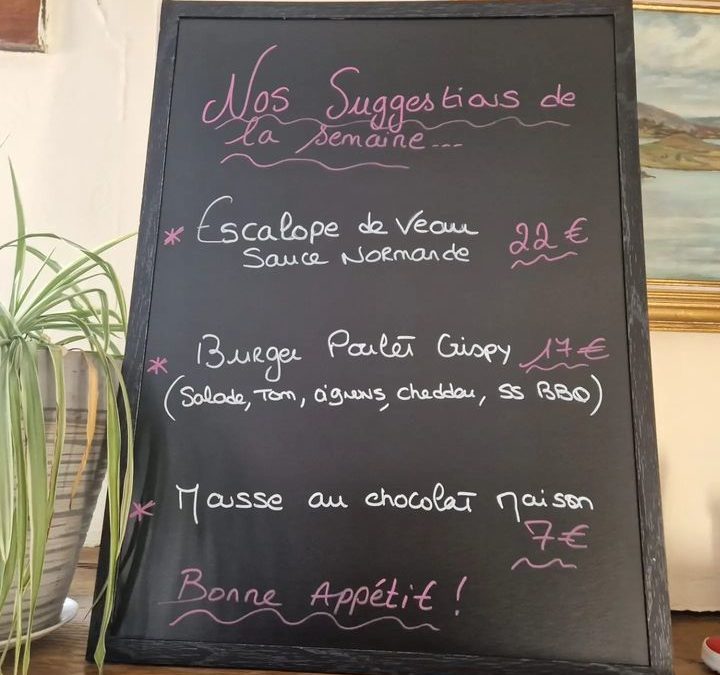 Nos Suggestions de
la semaine...
* Escalope de Veau 22 €
Sauce Normande
* Burger Poulet Crispy 17 €
(Salade, Tom, oignons, cheddar, SS BBQ)
* Mousse au chocolat maison
7 €
Bonne Appétit !